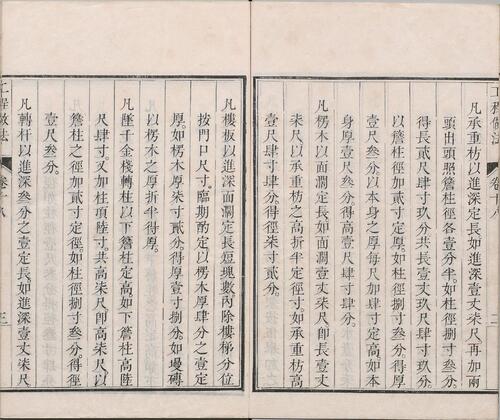 工程做法 卷十八 二
凡承重枋以進深定長如進深壹丈柒尺。再加兩
頭出頭照簷柱徑各壹分半。如柱徑捌寸叁分。
得長貳尺肆寸玖分。共長壹丈玖尺肆寸玖分。
以簷柱徑加貳寸定厚。如柱徑捌寸叁分得厚
壹尺叁分。以本身之厚每尺加肆寸定高。如本
身厚壹尺叁分。得高壹尺肆寸肆分。
凡楞木以面濶定長。如面濶壹丈柒尺。即長壹丈
柒尺。以承重枋之高折半定徑寸。如承重枋高
壹尺肆寸肆分。得徑柒寸貳分。
凡樓板以進深面濶定長短塊數。內除樓梯分位
按門口尺寸。臨期酌定。以楞木厚肆分之壹定
厚。如楞木厚柒寸貳分。得厚壹寸捌分。如墁磚
以楞木之厚折半得厚。
凡墜千金棧轉柱以下簷柱定高。如下簷柱高陸
尺肆寸。又加柱頂陸寸。共高柒尺。即高柒尺。以
簷柱之徑加貳寸定徑。如柱徑捌寸叁分。得徑
壹尺叁分。
凡轉杆以進深叁分之壹定長。如進深壹丈柒尺。
工程做法 卷十八 三